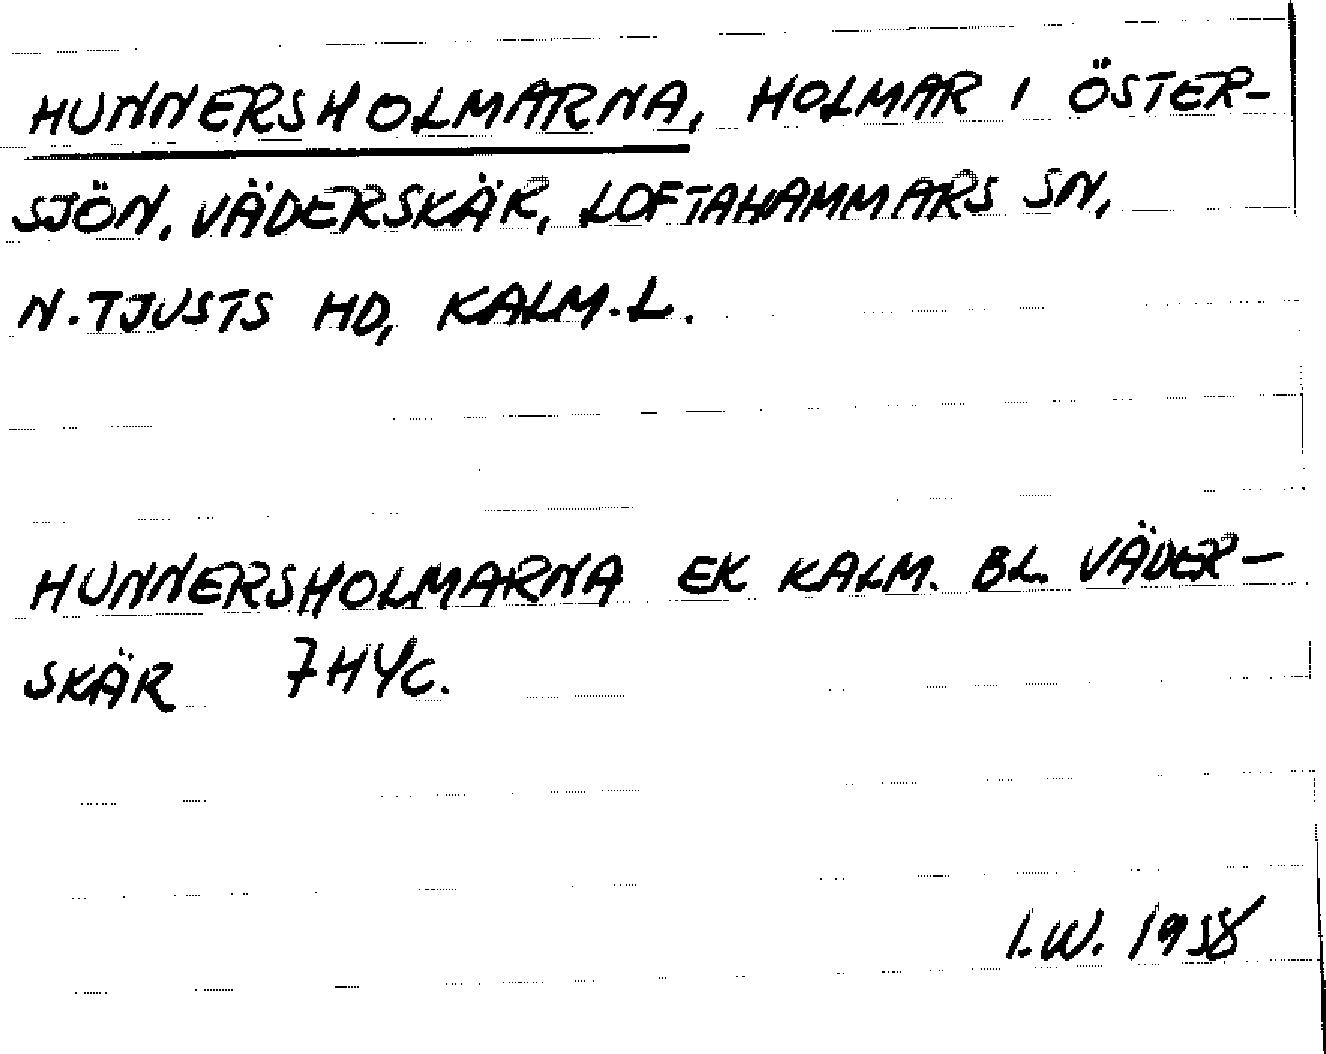 HUNNERSHOLMARNA, HOLMAR I ÖSTER-
SJÖN. VÄDERSKÄR, LOFTAHAMMARS SN,
N. TJUSTS HD, KALM. L.
HUNNERSHOLMARNA EK KALM. BL. VÄDER-
SKÄR 7H4c.
I. W. 1958